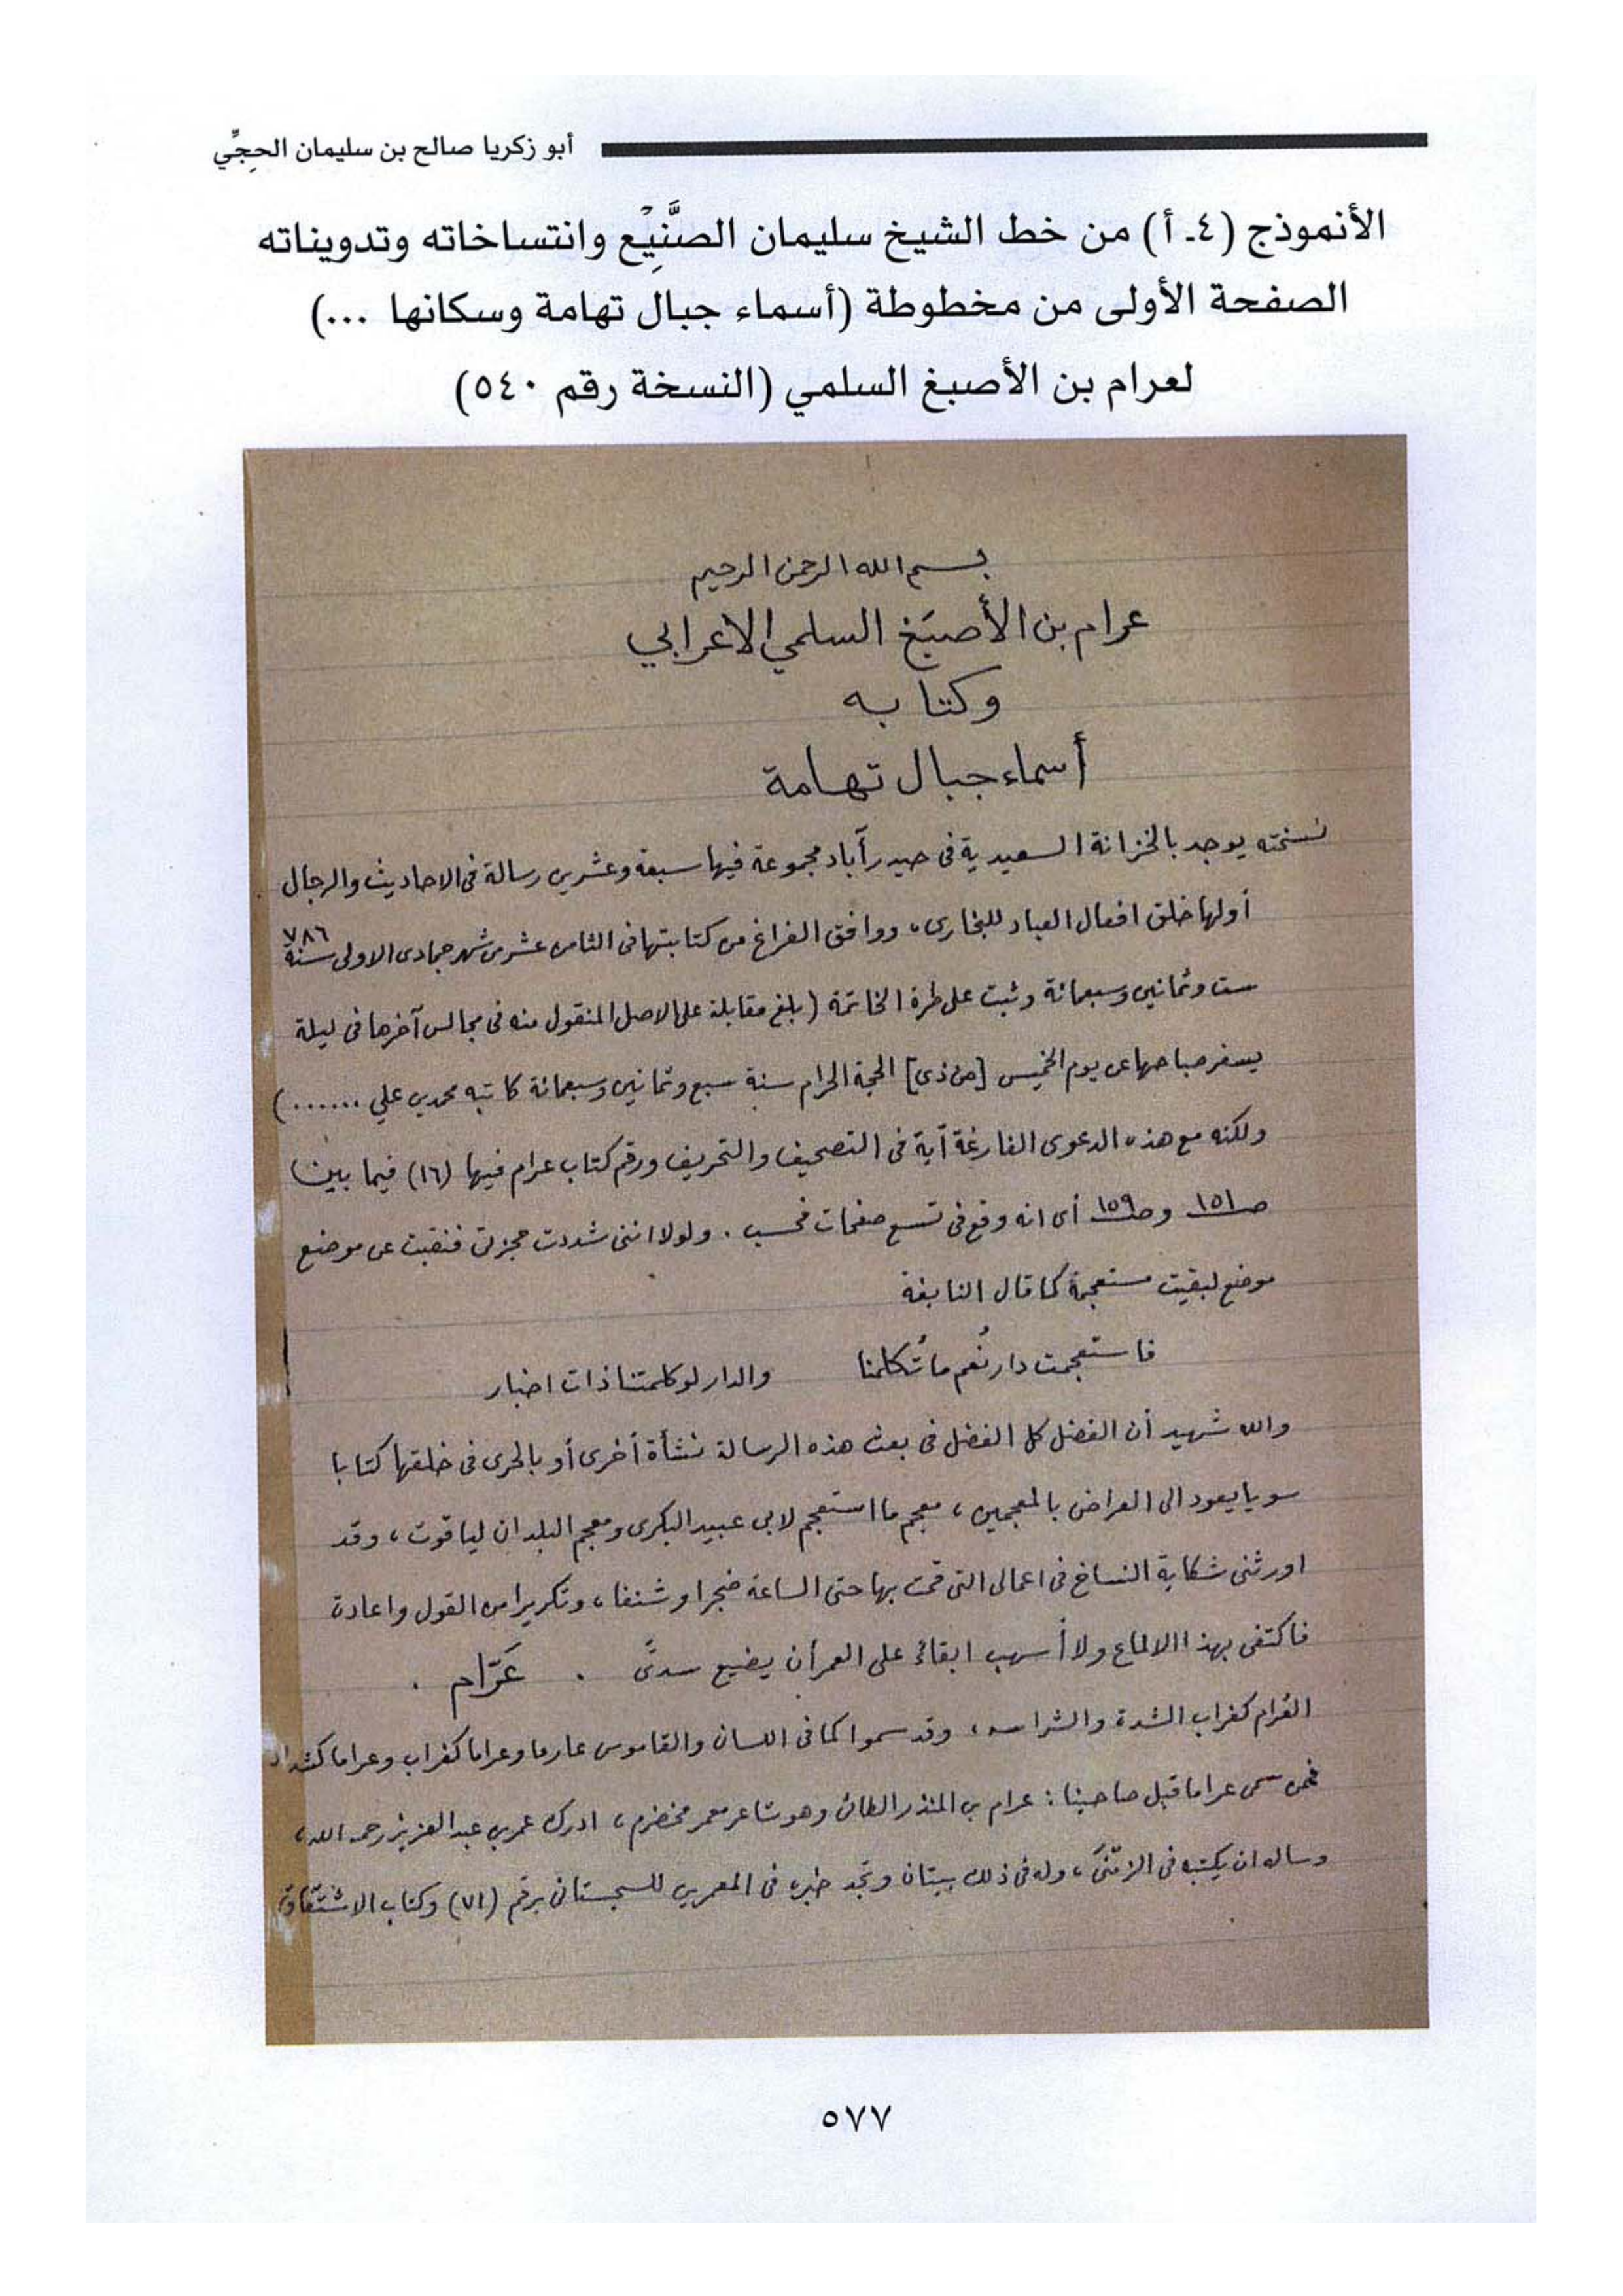 أبو زكريا صالح بن سليمان الحجِّي
الأنموذج (٤ـ أ) من خط الشيخ سليمان الصَّنِيْع وانتساخاته وتدويناته
الصفحة الأولى من مخطوطة (أسماء جبال تهامة وسكانها ...)
لعرام بن الأصبغ السلمي (النسخة رقم ٥٤٠)
بسم الله الرحمن الرحيم
عرام بن الأصبَغ السلمي الاعرابي
وكتابه
أسماء جبال تهامة
نسخته يوجد بالخزانة السعيدية فى حيدرآباد مجموعة فيها سبعة وعشرين رسالة فى الاحاديث والرجال
أولها خلق افعال العباد للبخارى، ووافق الفراغ من كتابتها فى الثامن عشر من شهر جمادى الاولى سنة ٧٨٦
ست وثمانين وسبعمائة وثبت على طرة الخاتمة (بلغ مقابلة على الاصل المنقول منه فى مجالس آخرها فى ليلة
يسفر صباحها عن يوم الخميس [من ذى] الحجة الحرام سنة سبع وثمانين وسبعمائة كاتبه محمد بن علي ......)
ولكنه مع هذه الدعوى الفارغة آية فى التصحيف والتحريف ورقم كتاب عرام فيها (١٦) فيما بين
صـ١٥١ وصـ١٥٩ أى انه وقع فى تسع صفحات فحسب . ولولا اننى شددت حجزتى فنقبت عن موضع
موضع لبقيت مستعجمة كما قال النابغة
فاستعجمت دار نُعم ما تُكلمنا والدار لو كلمتنا ذات اخبار
والله شهيد أن الفضل كل الفضل فى بعث هذه الرسالة نشأة أخرى أو بالحرى فى خلقها كتابا
سويا يعود الى العراض بالمعجمين، معجم ما استعجم لابى عبيد البكرى ومعجم البلدان لياقوت، وقد
اورثنى شكاية النساخ فى اعمالى التى قمت بها حتى الساعة ضجرا وشنفا، وتكريرا من القول واعادة
فاكتفى بهذا الالماع ولا أسهب ابقاءً على العمر أن يضيع سدىً . عَرّام .
العُرام كغراب الشدة والشراسه، وقد سموا كما فى اللسان والقاموس عارما وعراما كغراب وعراما كشداد
فمن سمى عراما قبل صاحبنا : عرام بن المنذر الطائى وهو شاعر معمر مخضرم، ادرك عمر بن عبدالعزيز رحمه الله،
وساله ان يكتبه فى الزمْنَى، وله فى ذلك بيتان وتجد خبره فى المعمرين للسجستانى برقم (٧١) وكتاب الاشتقاق
٥٧٧